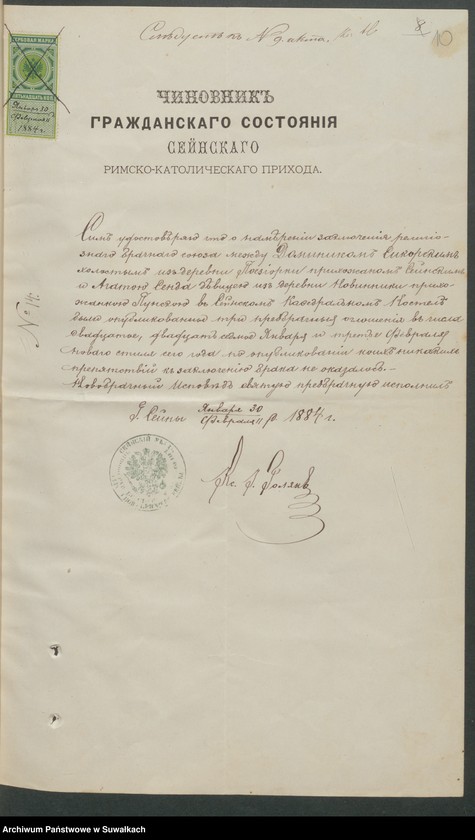 Слѣдуетъ къ № 9 акта.
8
10
ГЕРБОВАЯ МАРКА
Января 30
Февраля 11
1884 г.
ЧИНОВНИКЪ
ГРАЖДАНСКАГО СОСТОЯНІЯ
СЕЙНСКАГО
РИМСКО-КАТОЛИЧЕСКАГО ПРИХОДА.
№ 14.
Симъ удостовѣряю что о намѣреніи заключенія религіо-
знаго брачнаго союза между Доминикомъ Сикорскимъ
холостымъ изъ деревни Посіорки прихожаномъ Сейнскимъ
и Агатою Сенда дѣвицею изъ деревни Новинники прихо-
жанкою Пунскою въ Сейнскомъ Кафедральномъ Костелѣ
были опубликованы три предбрачныя оглашенія въ числа
двадцатое, двадцать седьмое Января и третье Февраля
новаго стиля сего года по опубликованіи коихъ никакихъ
препятствій къ заключенію брака не оказалось.-
Новобрачный Исповѣдь святую предбрачную исполнилъ
Г. Сейны Января 30 / Февраля 11 д. 1884 г.
Кс.
Archiwum Państwowe w Suwałkach